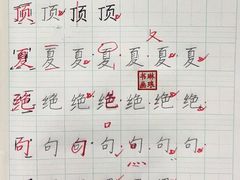 顶顶顶
夏夏夏夏夏夏夏
绝绝绝绝绝绝绝
句句句句句句句